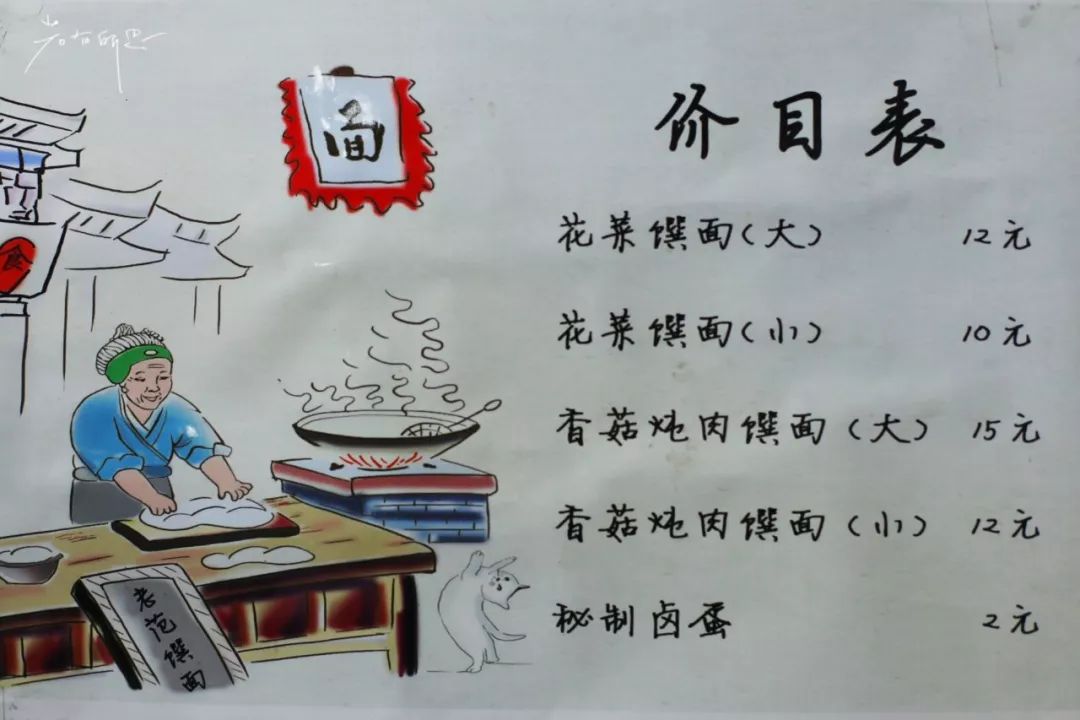 面
食
老范馔面
价目表
花菜馔面（大） 12元
花菜馔面（小） 10元
香菇炖肉馔面（大） 15元
香菇炖肉馔面（小） 12元
秘制卤蛋 2元